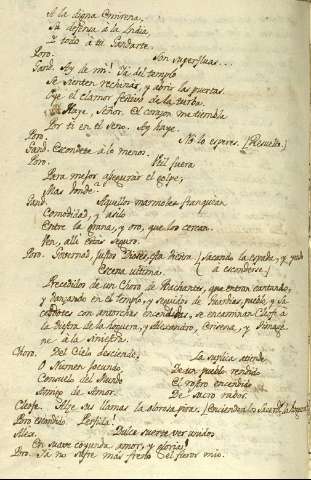 A la digna Cmirena.
La defensa à la India,
Y todo à ti Gandarte.
Poro. Son superfluas...
Gand. Ay de mi! Ya del templo
Se sienten rechinar, y abrir las puertas
Oye el clamor festivo de la turba.
Haye, Señor. El corazon me tiembla
Por ti en el seno. Ay haye.
Poro. No lo esperes. (Resuelto.)
Gand. Escondete à lo menos.
Poro. Util fuera
Para mejor asegurar el golpe;
Mas donde?
Gand. Aquellos marmoles franquean
Comodidad, y asilo
Entre la grana, y oro, que los cercan.
Ven, alli estas seguro.
Poro. Governad, justos Dioses, esta diestra. (Sacando la espada, y yendo
à esconderse.)
Escena ultima.
Precedidos de un Choro de Bachantes, que entran cantando,
y danzando en el templo, y seguidos de Guardias, pueblo, y Sa
cerdotes con antorchas encendidas, se encaminan Cleofe à
la diestra de la hoguera, y Alessandro, Erixena, y Timage
ne à la siniestra.
Choro. Del Cielo desciende,
O Numen jocundo,
Consuelo del Mundo
Amigo de Amor.
La suplica atiende
De un pueblo rendido
El rostro encendido
De sacro rubor.
Cleofe. Alze sus llamas la olorosa pira. (Encienden los Sacerd.
Poro escondido. Perfida!
Alex. Dulce suerte ver unidos
En suave coyunda amor, y gloria!
Poro. Ya no sufre mas freno el furor mio.